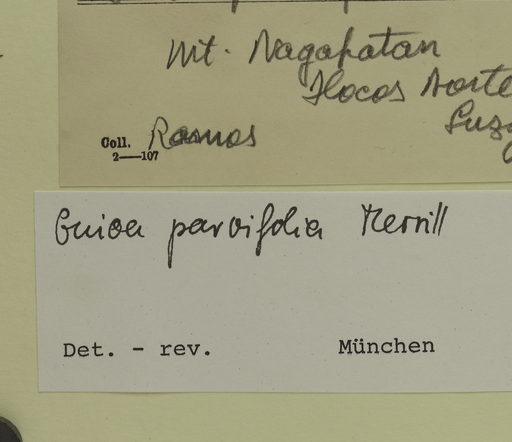 Mt. Nagapatan
Ilocos Norte
Luzo
Coll. Ramos
2—107
Guioa parvifolia Merrill
Det. - rev. München